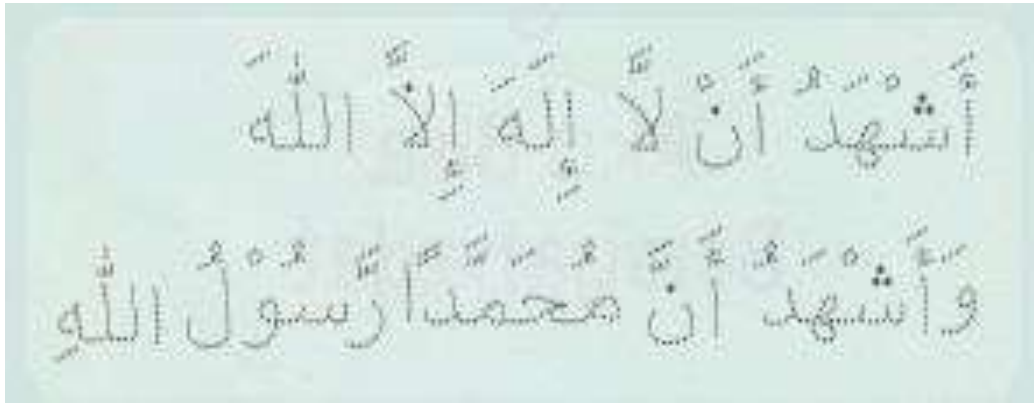 أَشْهَدُ أَنْ لَّا إِلَهَ إِلَّا اللَّهَ
وَأَشْهَدُ أَنَّ مُحَمَّدًا رَّسُوْلُ اللَّهِ